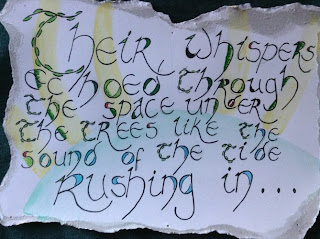 Their whispers
echoed through
the space under
the trees like the
sound of the tide
Rushing in...